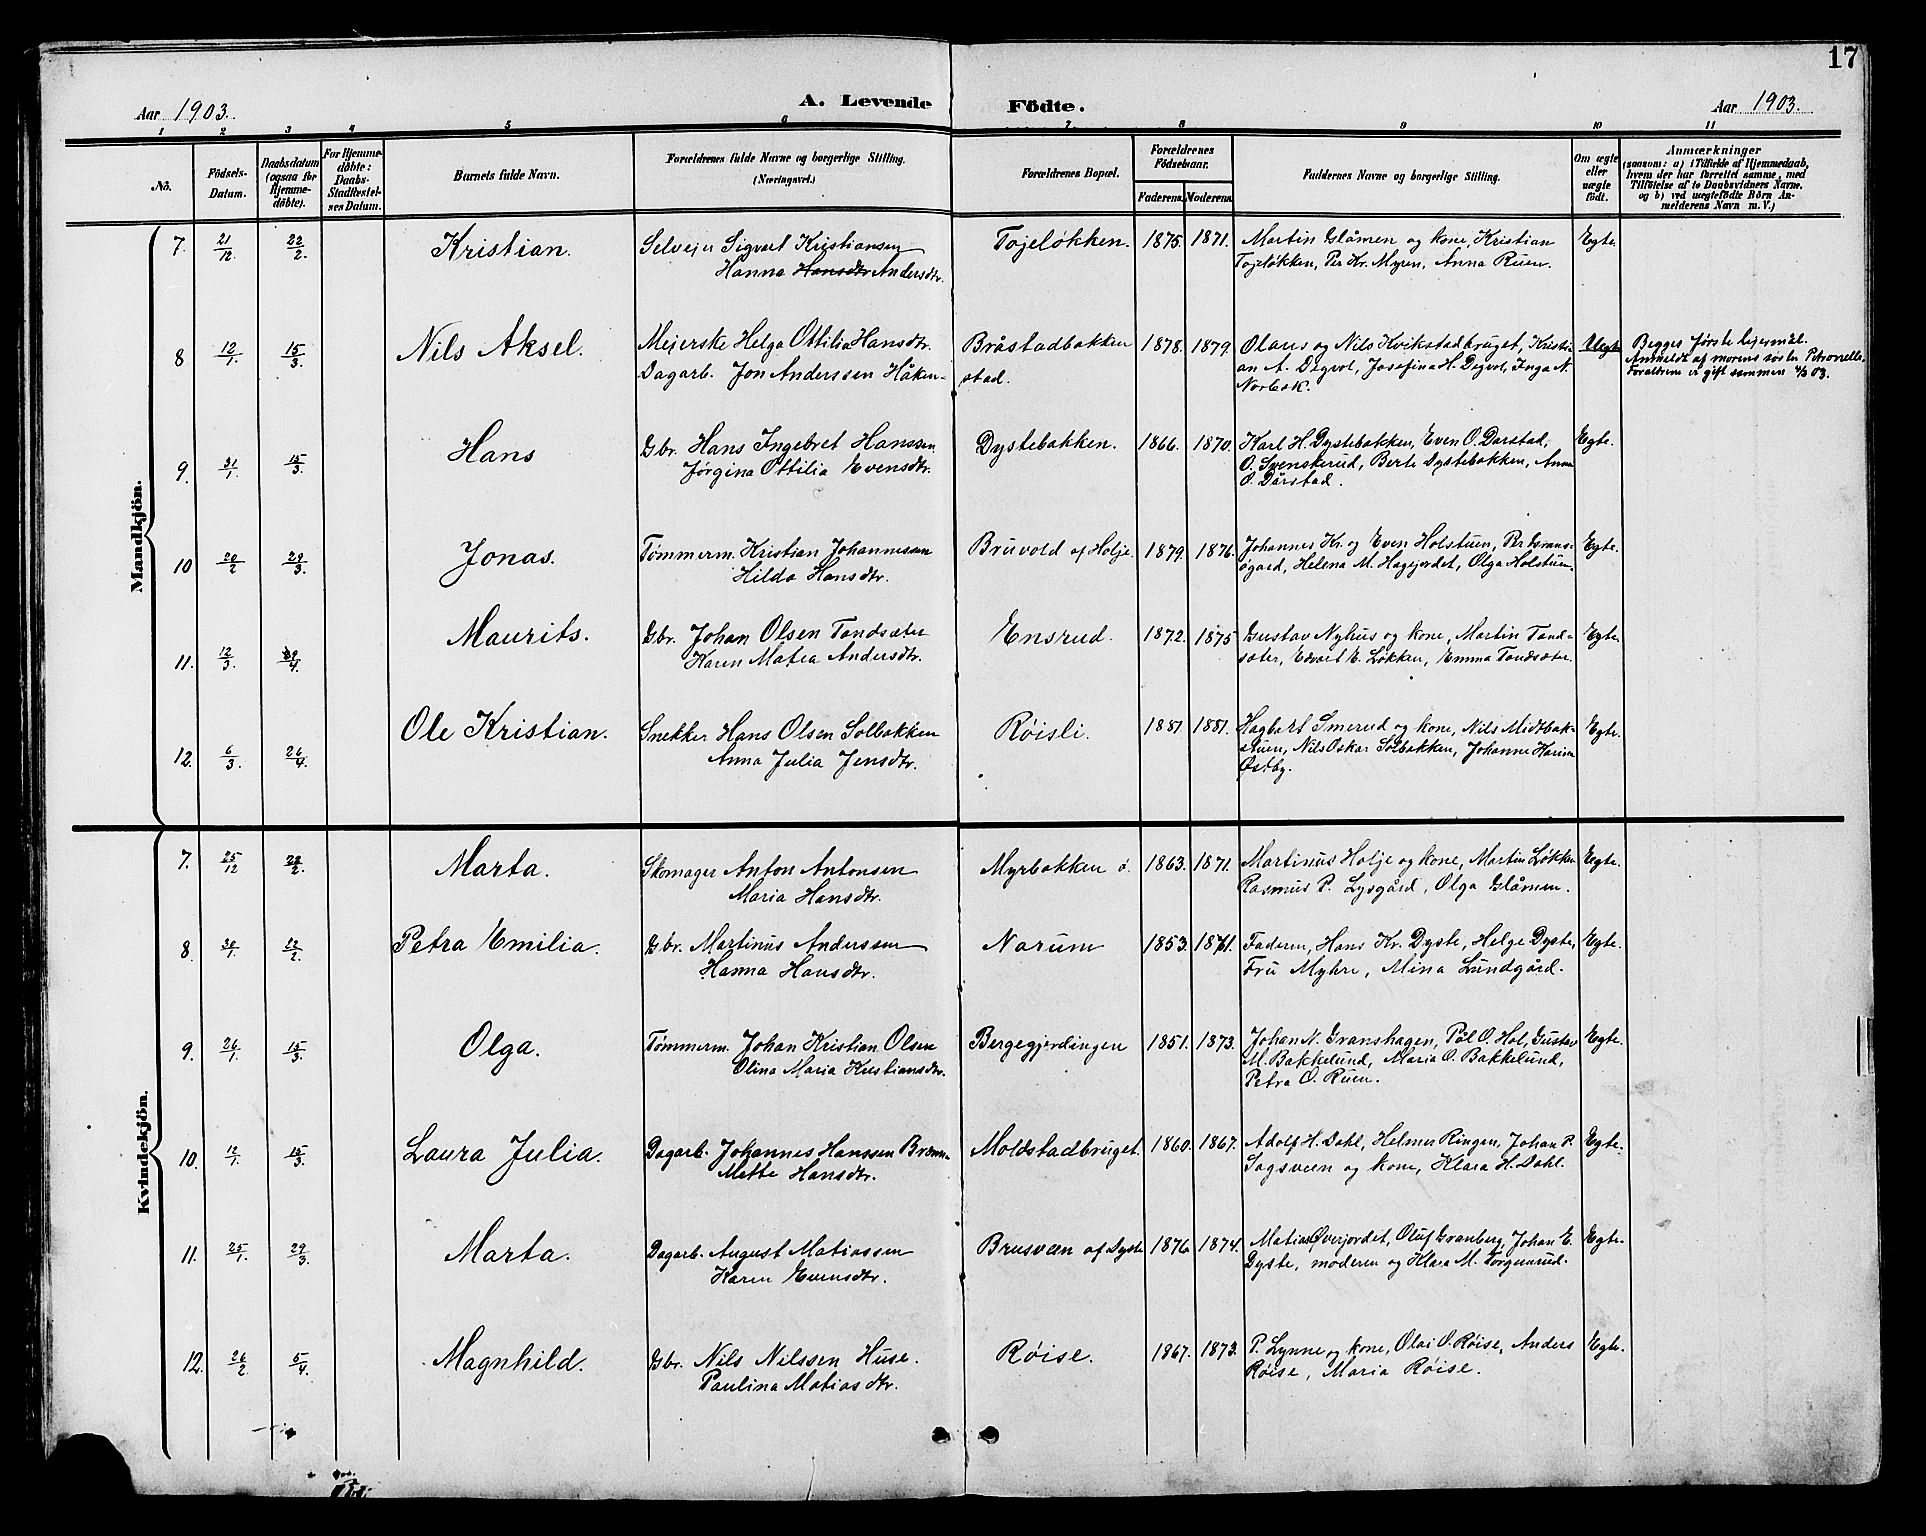 17
Aar 1903. A. Levende Födte. Aar 1903.
1 2 3 4 5 6 7. 8 9 10 11
No. Födsels-Datum. Daabsdatum (ogsaa for Hjemme-döbte). For Hjemme-döbte: Daabs-Stadfæstel-ses Datum. Barnets fulde Navn. Forældrenes fulde Navne og borgerlige Stilling. (Næringsvei.) Forældrenes Bopæl. Forældrenes Födselsaar. Faderens. Moderens. Faddernes Navne og borgerlige Stilling. Om ægte eller uægte födt. Anmærkninger (saasom: a) i Tilfælde af Hjemmedaab, hvem der har forrettet samme, med Tilföielse af to Daabsvidners Navne. og b) ved uægtefödte Börn An-melderens Navn m. V.)
Mandkjön.
7. 21/12 22/2 Kristian. Selvejer Sigvart Kristiansen Tojeløkken. 1875. 1871. Martin Glåmen og kone, Kristian Egte.
Hanna Hansdtr Andersdtr. Tojeløkken, Per Kr. Myren, Anna Ruen.
8 12/1. 15/3. Nils Aksel. Mejerske Helga Ottilia Hansdtr. Bråstadbakken 1878. 1879. Olaus og Nils Kvikstadbruget, Kristi- Uegte Begges første lejermål.
Dagarb. Jon Anderssen Håken- stad. an A. Degvol, Josefina H. Degvol, Inga N. Anmeldt af morens søster Petronelle.
Norbak. Forældrene er gift sammen 4/3 03.
9. 31/1. 15/3. Hans Gbr. Hans Ingebret Hanssen Dystebakken. 1866. 1870. Karl H. Dystebakken, Even O. Dårstad, Egte.
Jørgina Ottilia Evensdtr. O. Svenskerud, Berte Dystebakken, Anna
O. Dårstad.
10 20/2 29/3. Jonas. Tømmerm. Kristian Johannessen Bruvold af Holje. 1879. 1876. Johannes Kr. og Even Holstuen, Per Egte.
Hilda Hansdtr. Helena M. Hagejordet, Olga Holstuen.
11. 12/3. 29/4. Maurits. Gbr. Johan Olsen Tandsæter Ensrud. 1872. 1875 Gustav Nyhus og kone, Martin Tand- Egte.
Karen Matea Andersdtr. sæter, Edvart E. Løkken, Emma Tandsæter.
12. 6/3. 26/4. Ole Kristian. Snekker Hans Olsen Solbakken Røisli. 1881. 1881. Hagbart Smerud og kone, Nils Midtbak- Egte.
Anna Julia Jensdtr. stuen, Nils Oskar Solbakken, Johanne Karine
Østby.
Kvindekjön.
7. 25/12 22/2. Marta. Skomager Anton Antonsen Myrbakken ø. 1863. 1871. Martinus Holje og kone, Martin Løkken Egte.
Maria Hansdtr. Rasmus P. Lysgård, Olga Glåmen.
8 30/1. 22/2. Petra Emilia. Gbr. Martinus Anderssen Narum 1853. 1861. Faderen, Hans Kr. Dyste, Helge Dyste, Egte.
Hanna Hansdtr. Fru Myhre, Mina Lundgård.
9. 26/1. 15/3. Olga. Tømmerm. Johan Kristian Olsen Bergegjerdingen 1851. 1873. Johan N. Granshagen, Pål O. Hol, Gustav Egte.
Olina Maria Kristiansdtr. M. Bakkelund, Maria O. Bakkelund,
Petra O. Ruen.
10. 12/1. 15/3. Laura Julia. Dagarb. Johannes Hanssen Moldstadbruget. 1860. 1867. Adolf H. Dahl, Helmer Ringen, Johan P. Egte.
Mette Hansdtr. Sagsveen og kone, Klara H. Dahl.
11. 25/1. 29/3. Marta. Dagarb. August Matiassen Brusveen af Dyste 1876 1874. Matias Øverjordet, Oluf Granberg, Johan E. Egte.
Karen Evensdtr. Dyste, moderen og Klara M.
12. 26/2. 5/4. Magnhild. Gbr. Nils Nilssen Huse. Røise. 1867. 1873. P. Lynne og kone, Olai O. Røise, Anders Egte.
Paulina Matiasdtr. Røise, Maria Røise.